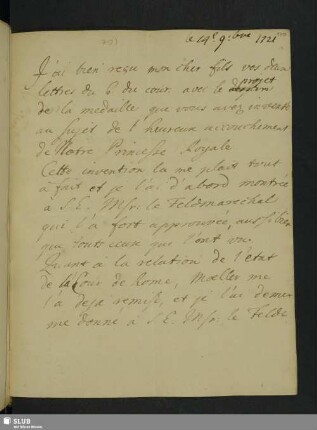 ce 14e 9.bre 1721
J'ai bien reçu mon cher fils vos deux
lettres du 6 du cour. avec le projet
de la medaille que vous avez inventé
au sujet de l'heureux accouchement
de Notre Princesse Royale
Cette invention là me plait tout
à fait et je l'ai d'abord montrée
à S.E. Msr. le Feldmarechal
qui l'a fort approuvée, aussi bien
que touts ceux qui l'ont vu,
Quant à la relation de l'état
de la Cour de Rome, Moeller me
l'a deja remise, et je l'ai de meme
me donné à S.E. Msr. le Feldm
SLUB